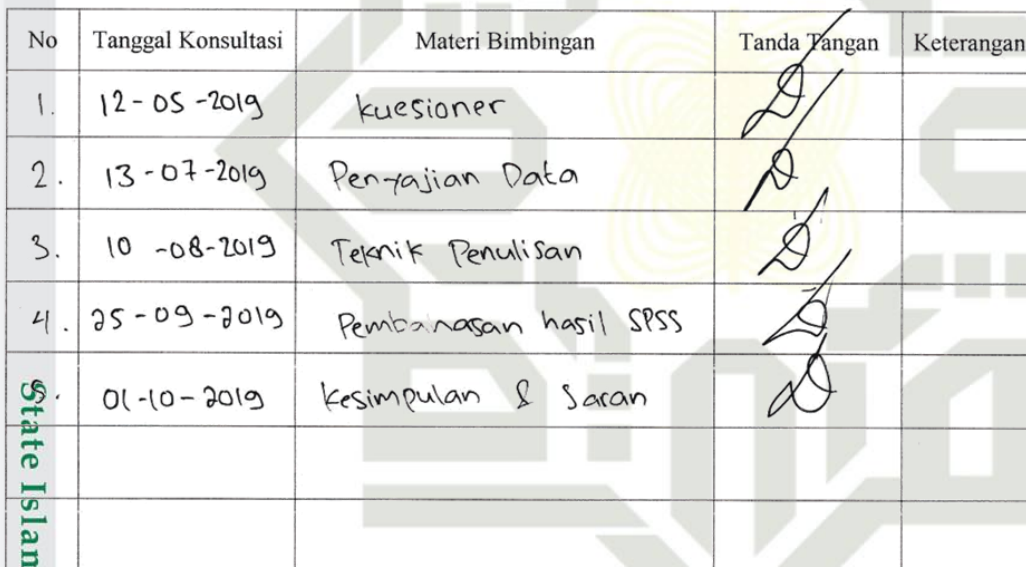 No Tanggal Konsultasi Materi Bimbingan Tanda Tangan Keterangan
1. 12-05-2019 kuesioner
2. 13-07-2019 Penyajian Data
3. 10-08-2019 Teknik Penulisan
4. 25-09-2019 Pembahasan hasil SPSS
5. 01-10-2019 Kesimpulan & Saran
State Islam